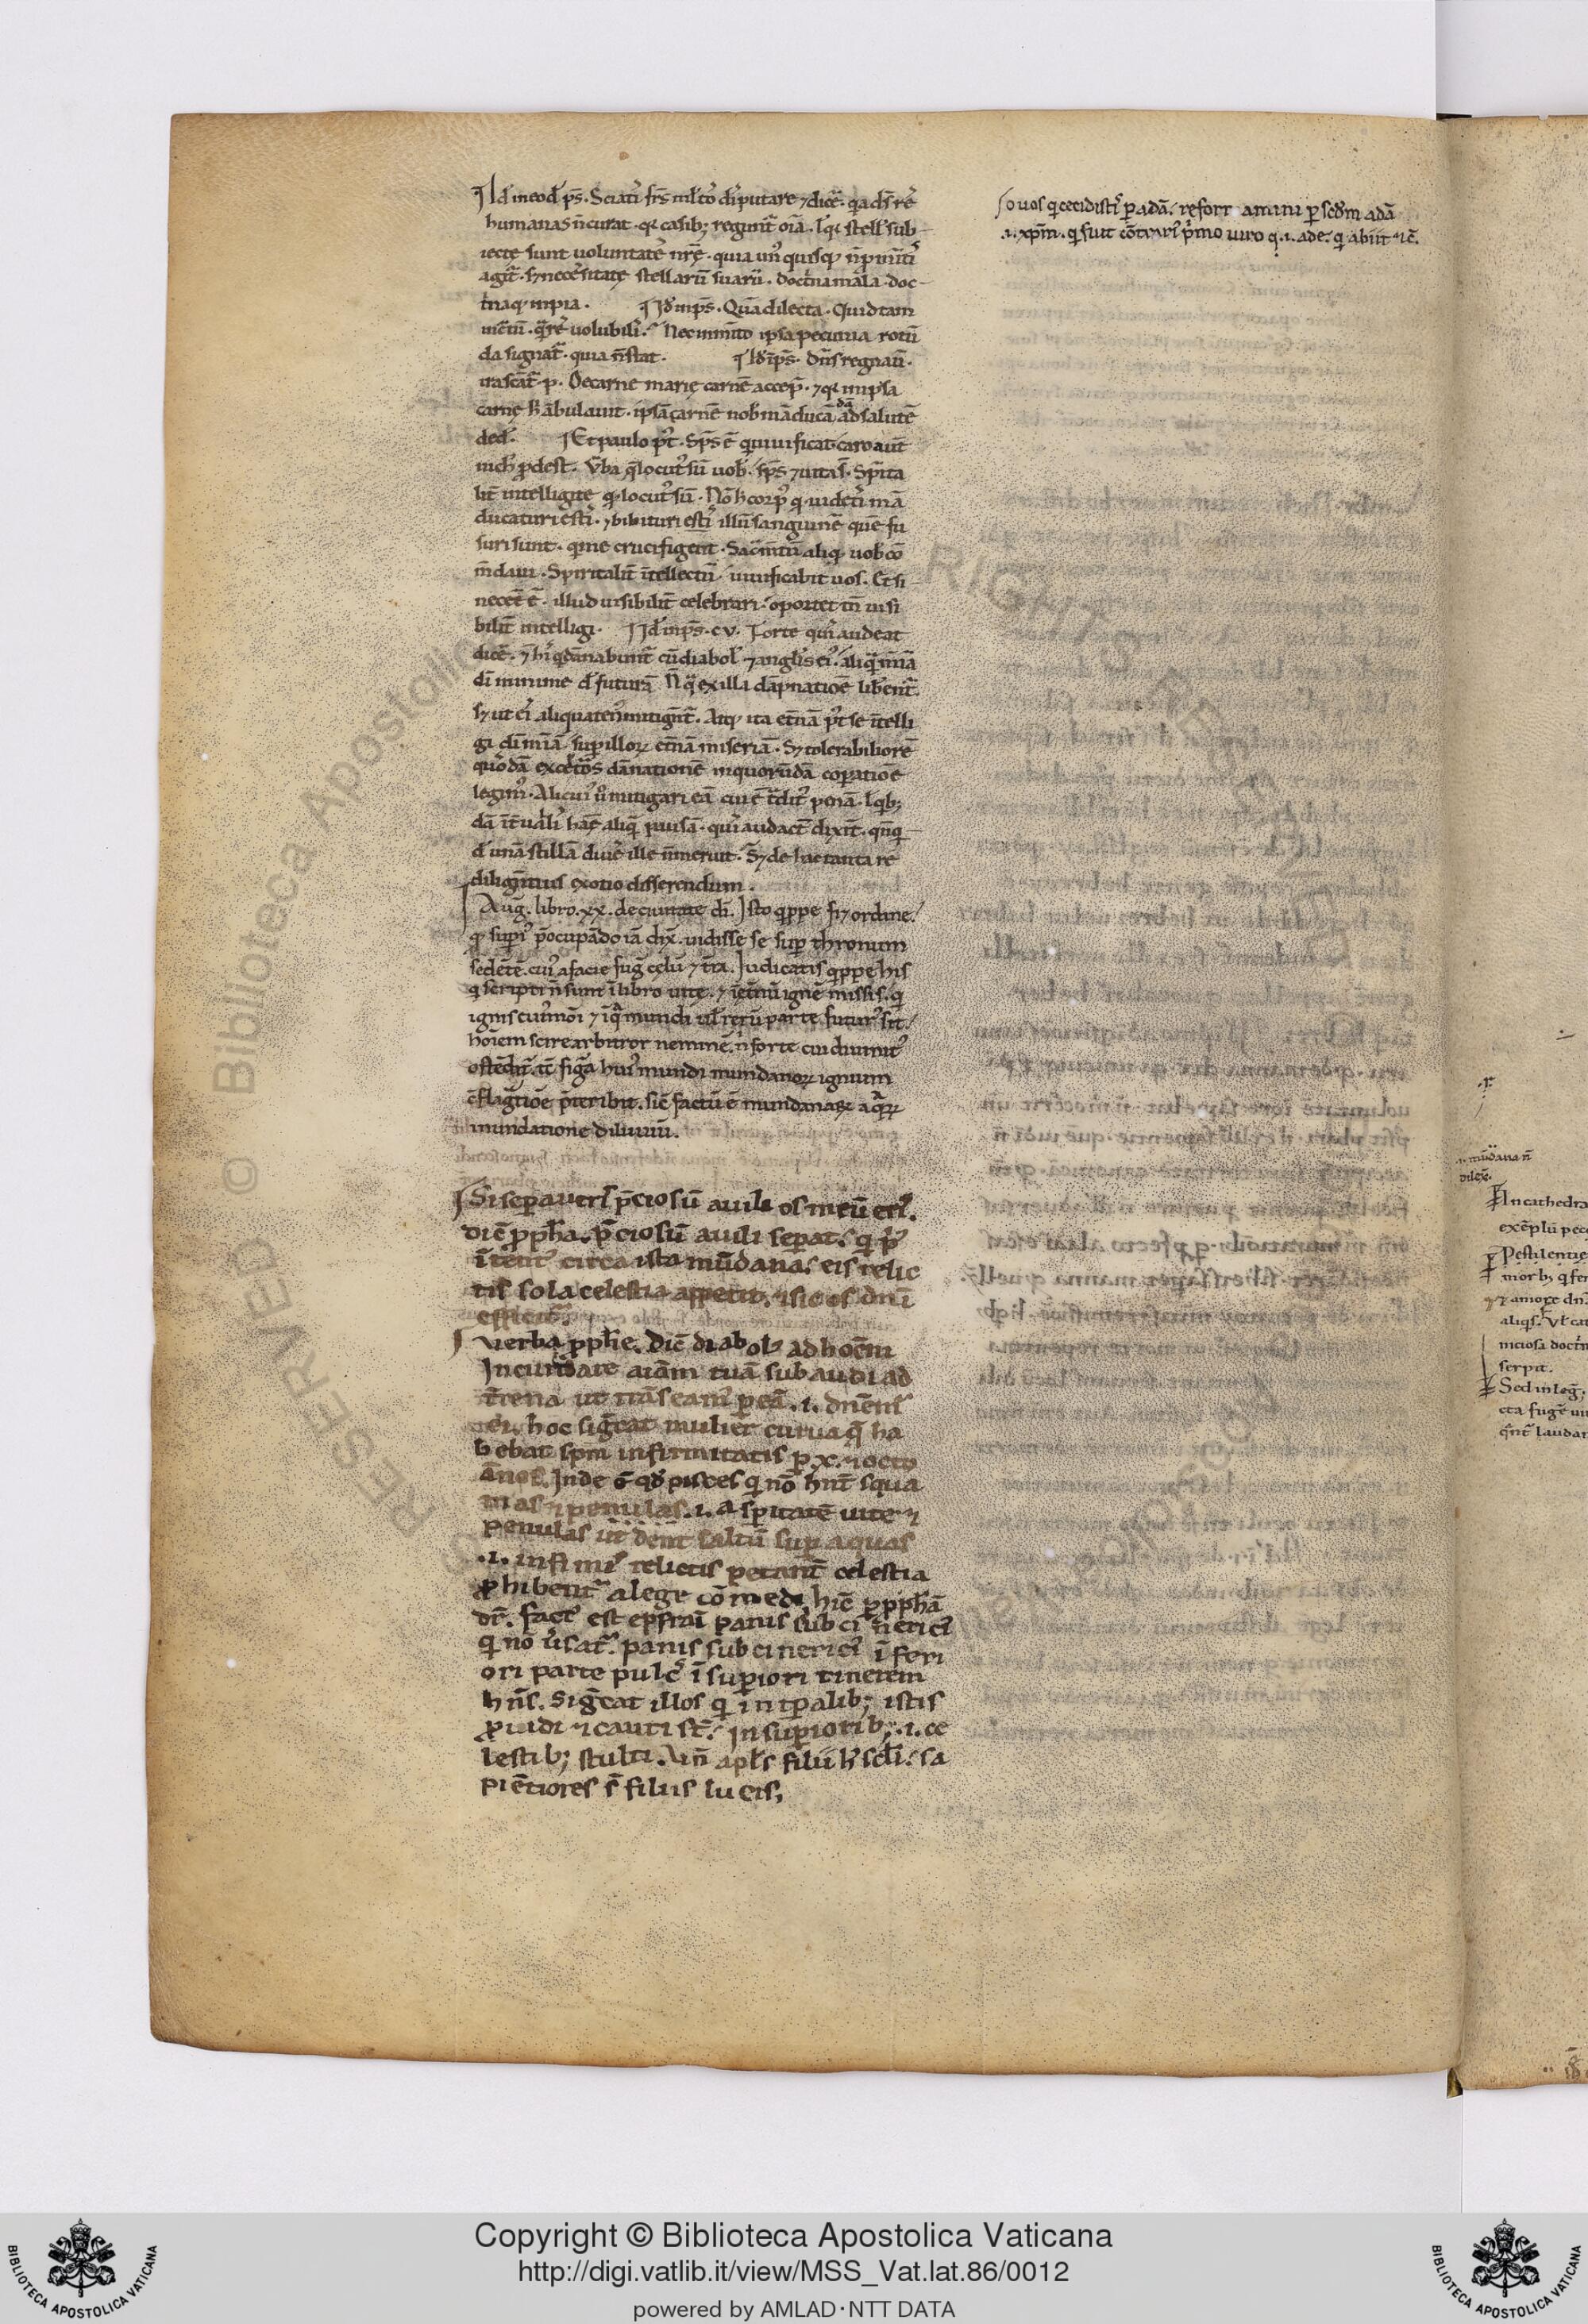 ¶ Id̄ in eod̄ ps̄. Sciatꝭ frs̄ ml̄tos dīputare ⁊ dicē. qia dꝭ rē
humanas n̄ curat. qꝛ casib; regunt̄ oīa. l̄ qꝛ stellꝭ sub
iecte sunt uoluntatē nr̄ę. quia un᷒ quisqꝫ n̄ p mitꝭ
agit̄. sꝫ necēsitate stellarū suarū. doct̄na mala. doc
t̄naqꝫ inpia. ¶ Id̄ in ps̄. Quā dilecta. Quid tam
īcertū. q̄rē uolubilꝭ. Nec inmīto ipsa pecunia rotū
da signat̄. quia n̄ stat. ¶ Id̄ ī ps̄. dn̄s regnauī.
irascāt̄. p. De carne marię carnē accep̄. ⁊ qꝛ in ipsa
carne h̄ ābulauit. ipsā carnē nob̄ māducādā ad salutē
ded̄. ¶ Et paulo pꝰt. Sp̄s ē qui uiuificat. caro aut̄
nich̄ ꝓdest. Vb̄a q̄ locut᷒ sū uob̄. sp̄s ⁊ uita s̄. Sp̄ita
lit̄ intelligite qꝫ locut᷒ sū. Nō h̄ corp᷒ qꝫ uidetꝭ mā
ducaturi estꝭ. ⁊ bibituri estꝭ illū sanguinē quē fu
suri sunt. qi me crucifigent. Sac̄m̄tū aliqꝫ uob̄ cō
m̄daui. Spiritalit̄ ītellectū. uiuificabit uos. Et si
neceē ē. illud uisibilit̄ celebrari. oportet tn̄ inuisi
bilit̄ intelligi. ¶ Id̄ in ps̄. cv. Forte qiꝭ audeat
dicē. ⁊ hiꝭ qi dānabunt̄ cū diabolꝭ ⁊ angl̄is ei᷒. aliqā m̄iā
dī minime d̄ futurā. Nꝫ q̄ ex illa dāpnatiōe libent̄.
sꝫ ut eiꝭ aliquaten᷒ mitign̄t̄. Atqꝫ ita et̄nā pꝰt se ītelli
gi dī m̄iā. suꝑ illoꝝ et̄nā miseriā. Sꝫ tolerabiliorē
quosdā excēt᷒os dānationē in quorūdā coꝑatiōe
legim᷒. Alicui᷒ ū mitigari eā cui ē t̄dit᷒ penā. l̄ qib;
dā īt̄uallꝭ hab̄e aliqā pausā. quiꝭ audact̄ dixit̄. qn̄qi
d̄ unā stillā diues ille n̄ meruit. Sꝫ de hac tanta re
diligēntius exotio disserendum.
Aug̃. libro. xx. de ciuitate dī. Isto qippe fit ordine.
qꝫ suꝑi᷒ p̄ocupādo iā dix̄. uidisse se suꝑ thronum
sedētē. cui᷒ a facie fug̃ celū ⁊ t̄ra. Iudicatis qippe his
qi scripti n̄ sunt ī libro uite. ⁊ ī et̄nū ignē missis. qi
ignis cui᷒modi ⁊ ī qā mundi ul̄ rerū parte futur᷒ sit.
hoīem scire arbitror neminē. nꝭ forte cui diuinit᷒
ostēdit̄. tc̄ figā hui᷒ mundi mundanoꝝ ignium
cōflagt̄iōe p̄teribit. sic̄ factū ē mundanaꝝ aqāꝝ
inundatione diluuiū.
¶ Si separauerꝭ p̄ciosū a uili os meū erꝭ.
dic̄ ꝓpha. p̄ciosū a uili separat. qi pi᷒
ītent᷒ circa ista mūdana. eis relic
tis sola celestia appetit. ⁊ sic os dn̄i
efficit̄.
¶ verba ꝓphe. Dic̄ diabol᷒ ad hoēm
Incuruare aīam tuā subaudi ad
t̄rena ut trāseam᷒ ꝑ eā. .i. dnēm᷒
ei. hoc sigc̄at mulier curua q̄ ha
bebat spm infirmitatis ꝑ. x. ⁊ octo
ānos. Inde ē qd̄ pisces qi nō hn̄t squa
mas ⁊ penulas. .i. asꝑitatē uite ⁊
penulas ut dent saltū suꝑ aquas
.i. infimiꝭ relictis petant celestia
ꝓhibent̄ a lege cōmedi. hic̄ ꝑ ꝓphā
dr̄. fact᷒ est effraī panis subcineriti᷒
qi nō ūsat̄. panis subcineriti᷒ ī feri
ori parte pulc̄ ī superiori cinerem
hn̄s. Sigc̄at illos qi in tꝑalib; istis
ꝓuidi ⁊ cauti st̄. In superiorib; .i. ce
lestib; stulti. Vn̄ apl̄s filii h᷒ sc̄li. sa
piētiores s̄ filiis lucis.
so uos qi cecidistꝭ ꝑ adā. reformamini ꝑ scd̄m adā
.i. xpm̄. qi fuit cōtrari᷒ p̄imo uiro qi .i. ade. qi abiit ⁊c̄.
.i. mūdana n̄
dilex̄.
In cathedra
exēplū pecc
Pestilentię
morb; q̄ fer
⁊ amore dn̄
aliqꝭ. Vl̄ ca
niciosa doct̄
serpit.
Sed in leg̃.
cta fugē ui
q̄nt̄ laudan
Copyright © Biblioteca Apostolica Vaticana
http://digi.vatlib.it/view/MSS_Vat.lat.86/0012
powered by AMLAD·NTT DATA
BIBLIOTECA APOSTOLICA VATICANA
BIBLIOTECA APOSTOLICA VATICANA